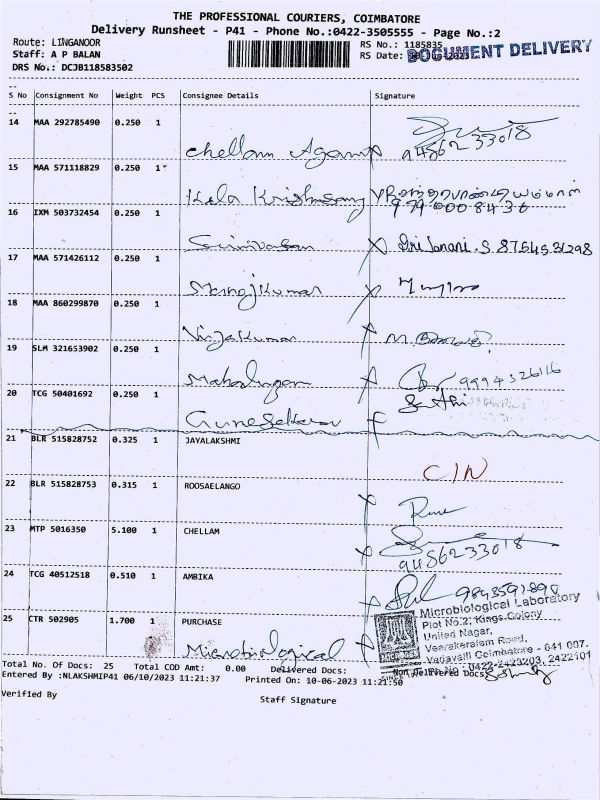 THE PROFESSIONAL COURIERS, COIMBATORE
Delivery Runsheet - P41 - Phone No.:0422-3505555 - Page No.:2
Route: LINGANOOR
Staff: A P BALAN
DRS No.: DCJB118583502
RS No.: 1185835
RS Date:
DOCUMENT DELIVERY
S No Consignment No Weight PCS Consignee Details Signature
14 MAA 292785490 0.250 1
Chellam Agam 9486233018
15 MAA 571118829 0.250 1
Kela Krishnasamy
16 IXM 503732454 0.250 1
Srinivasan Sri Janani.S
17 MAA 571426112 0.250 1
Manojkumar
18 MAA 860299870 0.250 1
Vijaykumar
19 SLM 321653902 0.250 1
Mahalingam 9994326116
20 TCG 50401692 0.250 1
Gunasekaran
21 BLR 515828752 0.325 1 JAYALAKSHMI
C/N
22 BLR 515828753 0.315 1 ROOSAELANGO
23 MTP 5016350 5.100 1 CHELLAM
9486233018
24 TCG 40512518 0.510 1 AMBIKA
25 CTR 502905 1.700 1 PURCHASE
Microbiological
Microbiological Laboratory
Plot No.2, Kings Colony
United Nagar,
Veerakeralam Road,
Vadavalli Coimbatore - 641 007.
0422-2423203, 2422101
Total No. Of Docs: 25 Total COD Amt: 0.00 Delivered Docs: Non Delivered Docs:
Entered By :NLAKSHMIP41 06/10/2023 11:21:37 Printed On: 10-06-2023 11:21:50
Verified By
Staff Signature